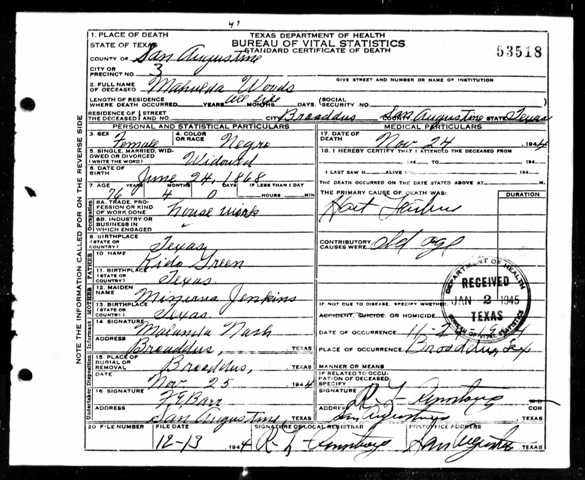 41
TEXAS DEPARTMENT OF HEALTH
BUREAU OF VITAL STATISTICS
STANDARD CERTIFICATE OF DEATH
53518
1. PLACE OF DEATH
STATE OF TEXAS
COUNTY OF San Augustine
CITY OR PRECINCT NO. 3
GIVE STREET AND NUMBER OR NAME OF INSTITUTION
2. FULL NAME OF DECEASED Manueda Woods
LENGTH OF RESIDENCE WHERE DEATH OCCURRED YEARS all life MONTHS DAYS. (SOCIAL SECURITY NO.
RESIDENCE OF THE DECEASED (STREET AND NO. CITY Broaddus San Augustine STATE Texas
PERSONAL AND STATISTICAL PARTICULARS
3. SEX Female 4. COLOR OR RACE Negro
5. SINGLE, MARRIED, WIDOWED OR DIVORCED (WRITE THE WORD) Widowed
6. DATE OF BIRTH June 24, 1868
7. AGE YEARS MONTHS DAYS IF LESS THAN 1 DAY
76 4 0 HOURS MIN.
8A. TRADE, PROFESSION OR KIND OF WORK DONE house work
8B. INDUSTRY OR BUSINESS IN WHICH ENGAGED
9. BIRTHPLACE (STATE OR COUNTRY) Texas
10 NAME Kido Green
11. BIRTHPLACE (STATE OR COUNTRY) Texas
12 MAIDEN NAME Jenkins
13. BIRTHPLACE (STATE OR COUNTRY) Texas
14 SIGNATURE Malinda Nash
ADDRESS Broaddus, TEXAS
15. PLACE OF BURIAL OR REMOVAL Broaddus, TEXAS
Nov. 25 1944
16 SIGNATURE
ADDRESS San Augustine, TEXAS
20 FILE NUMBER FILE DATE
12-13 1944
MEDICAL PARTICULARS
17. DATE OF DEATH Nov. 24 1944
18. I HEREBY CERTIFY THAT I ATTENDED THE DECEASED FROM
19 TO 19
I LAST SAW H ALIVE ON 19
THE DEATH OCCURRED ON THE DATE STATED ABOVE AT M.
THE PRIMARY CAUSE OF DEATH WAS:
Heart Failure
CONTRIBUTORY CAUSES WERE: Old age
IF NOT DUE TO DISEASE, SPECIFY WHETHER:
ACCIDENT, SUICIDE OR HOMICIDE
DATE OF OCCURRENCE
PLACE OF OCCURRENCE Broaddus, Tex
MANNER OR MEANS
IF RELATED TO OCCUPATION OF DECEASED, SPECIFY
SIGNATURE
ADDRESS San Augustine
SIGNATURE OF LOCAL REGISTRAR POSTOFFICE ADDRESS
San Augustine TEXAS
DEPARTMENT OF HEALTH
RECEIVED
JAN 2 1945
TEXAS
BUREAU OF VITAL STATISTICS
NOTE THE INFORMATION CALLED FOR ON THE REVERSE SIDE